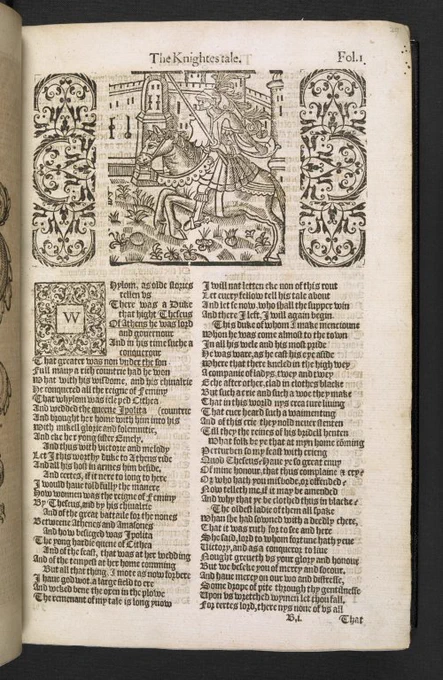 The Knightes tale. Fol.1
Whylom, as olde stories
tellen vs
There was a Duke
that hight Theseus
Of Athens he was lord
and gouernour
And in his time suche a
conquerour
That greater was non vnder the son
Full many a rich countrie had he won
What with his wisdome, and his chiualrie
He conquered all the reigne of Feminy
That whylom was icleped Cithea
And wedded the queene Ipolita (countrie
And brought her home with him into his
With mikell glorie and solemnitie,
And eke her yong sister Emely,
And thus with victorie and melody
Let I this worthy duke to Athens ride
And all his host in armes him beside,
And certes, if it nere to long to here
I would haue told fully the manere
How wonnen was the reigne of Feminy
By Theseus, and by his chiualrie
And of the great battaile for the nones
Betweene Athenes and Amasones
And how besieged was Ipolita
The yong hardie quene of Cithea
And of the feast, that was at her wedding
And of the tempest at her home comming
But all that thing, I mote as now forbere
I haue god wot, a large field to ere
And weked bene the oxen in the plowe
The remenant of my tale is long ynow
I will not letten eke non of this rout
Let euery fellow tell his tale about
And let se now, who shall the supper win
And there I left, I will again begin.
This duke of whom I make mencioune
When he was come almost to the town
In all his wele and his most pride
He was ware, as he cast his eye aside
Where that there kneled in the high wey
A companie of ladys, twey and twey
Eche after other, clad in clothes blacke
But such a crie and such a woe they make
That in this world nys creature liuing
That euer heard such a waimenting
And of this crie they nold neuer stenten
Till they the reines of his bridell henten
What folk be ye that at myn home coming
Perturben so my feast with crieng
Quod Theseus: Haue ye so great enuy
Of mine honour, that thus complaine & cry
Or who hath you misbode, or offended
Now telleth me, if it may be amended
And why that ye be clothed thus in blacke
The oldest ladie of them all spake
Whan she had swouned with a deedly chere,
That it was ruth for to see and here
She said, lord to whom fortune hath yeue
Victory, and as a conquerour to liue
Nought greueth vs your glory and honour
But we beseke you of mercy and socour,
And haue mercy on our wo and distresse,
Some drope of pite through thy gentilnesse
Upon vs wretched wymen let thou fall,
For certes lord, there nys none of vs all
B.i. That